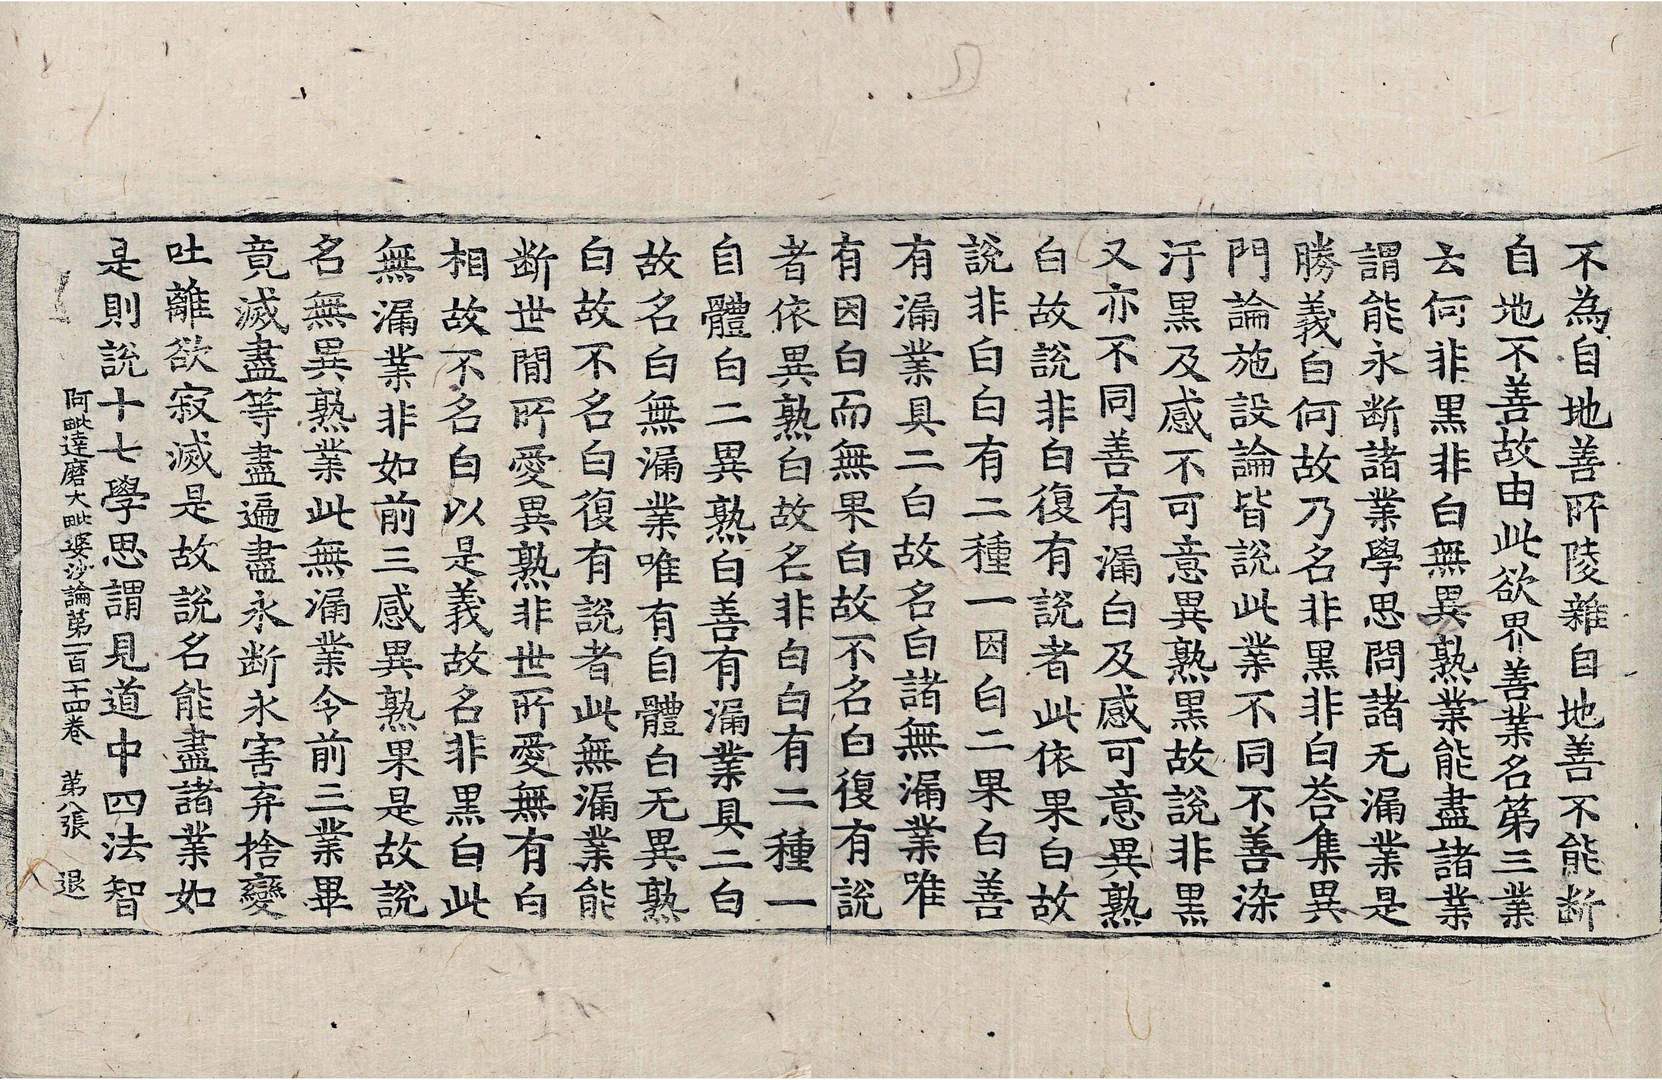 不為自地善所陵雜自地善不能斷
自地不善故由此欲界善業名第三業
云何非黑非白無異熟業能盡諸業
謂能永斷諸業學思問諸无漏業是
勝義白何故乃名非黑非白荅集異
門論施設論皆說此業不同不善染
汙黑及感不可意異熟黑故說非黑
又亦不同善有漏白及感可意異熟
白故說非白復有說者此依果白故
說非白白有二種一因白二果白善
有漏業具二白故名白諸無漏業唯
有因白而無果白故不名白復有說
者依異熟白故名非白白有二種一
自體白二異熟白善有漏業具二白
故名白無漏業唯有自體白无異熟
白故不名白復有說者此無漏業能
斷世間所愛異熟非世所愛無有白
相故不名白以是義故名非黑白此
無漏業非如前三感異熟果是故說
名無異熟業此無漏業令前三業畢
竟滅盡等盡遍盡永斷永害弃捨變
吐離欲寂滅是故說名能盡諸業如
是則說十七學思謂見道中四法智
阿毗達磨大毗婆沙論第一百一十四卷　第八張　退